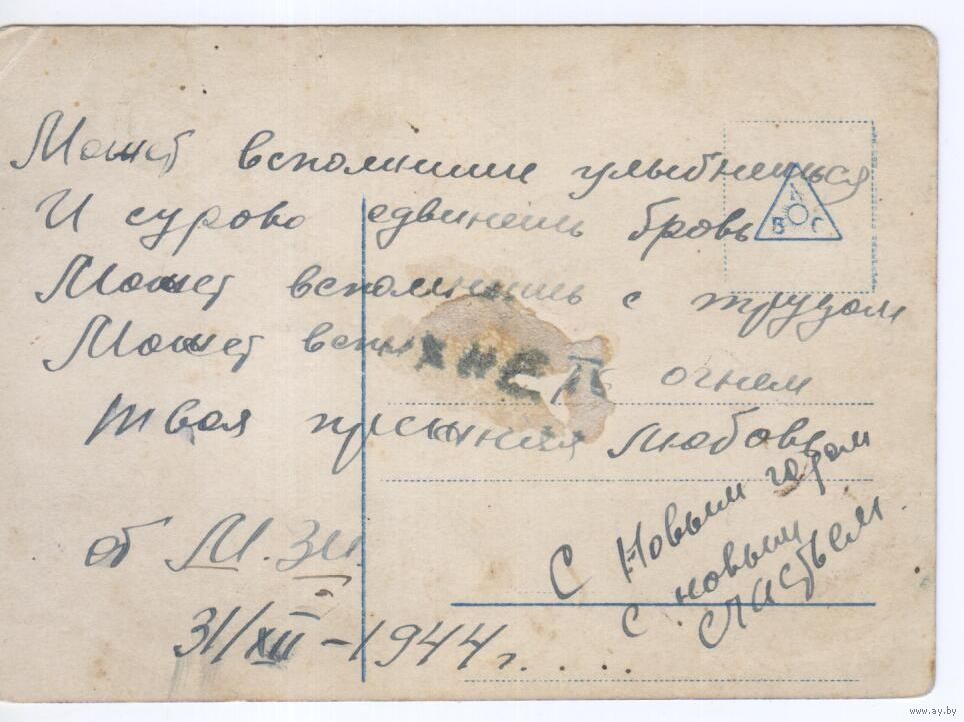 Может вспомнишь улыбнешься
И сурово сдвинешь бровь
Может вспомнишь с трудом
Может огнем
Твоя прежняя любовь
от М. Зи.
31/XII – 1944 г. . . . .
С Новым годом
с новым
счастьем.
А
В С
www.ay.by